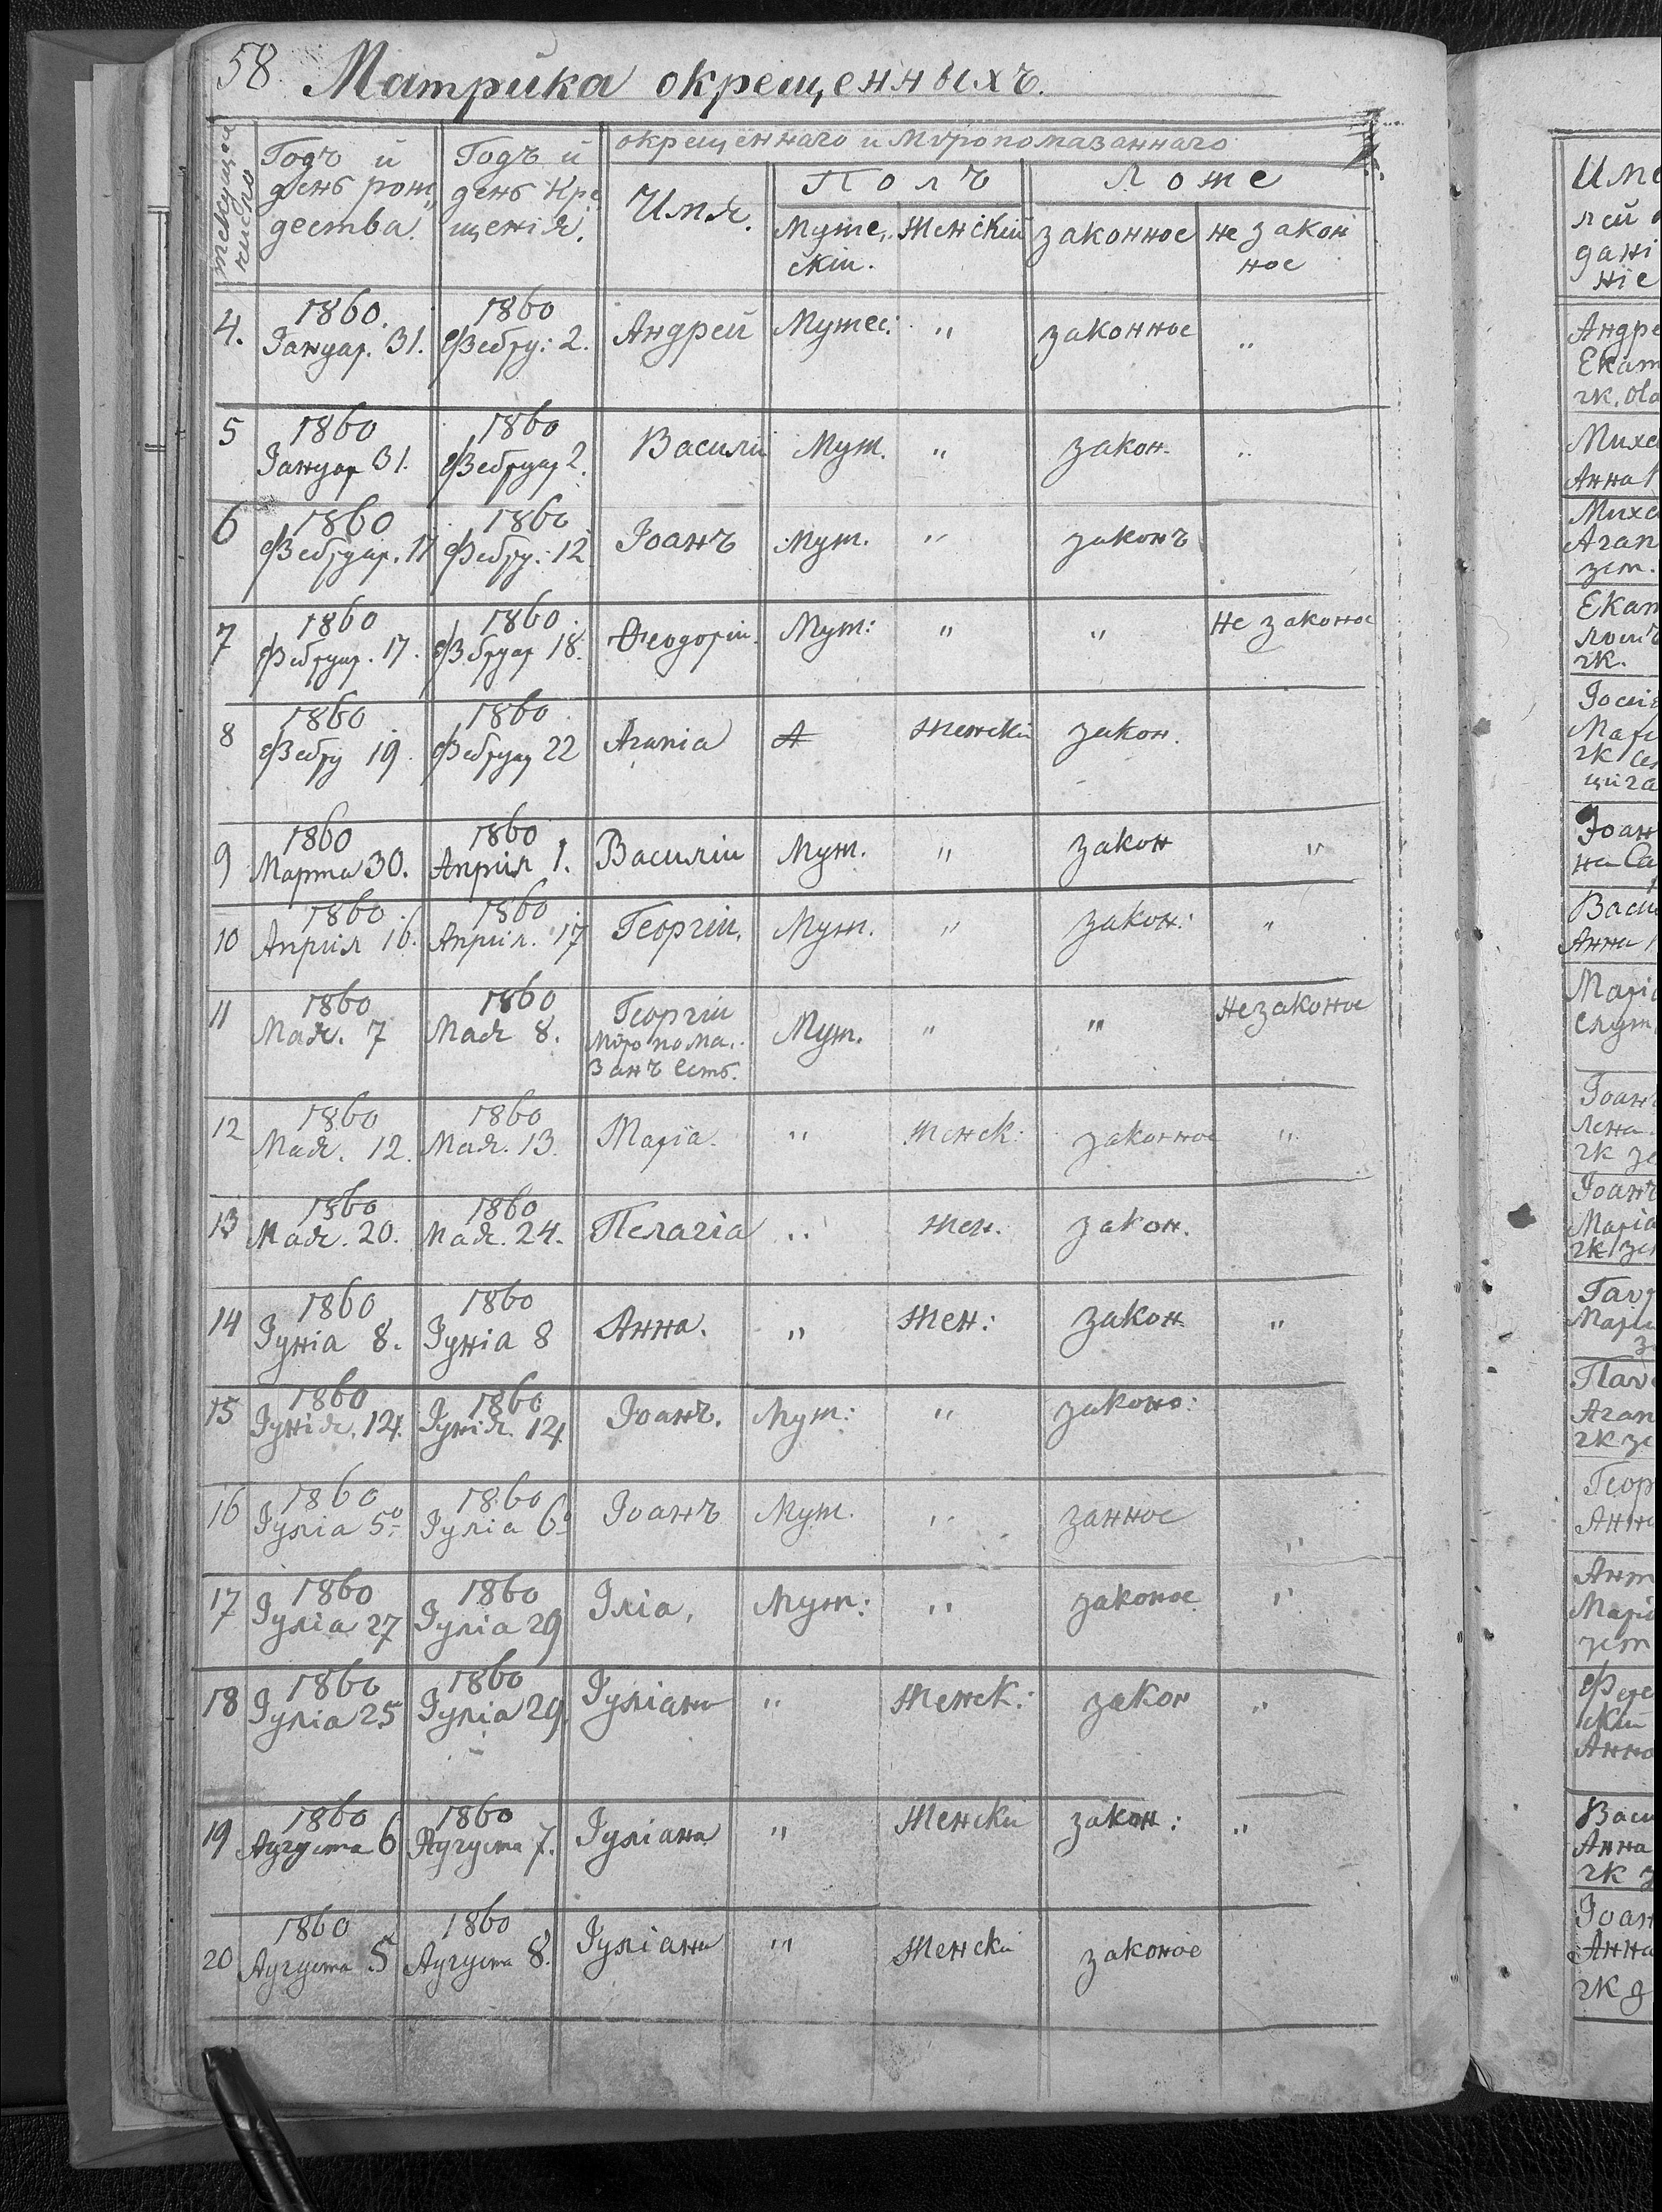 58. Матрика окрещенныхъ.
текущое число
Годъ и день рож„дества.
Годъ и день Кре щенія.
окрещеннаго и Муропомазаннаго
Имя.
Полъ
Муже„скіи.
Женскіи
Ложе
законное
не закон ное
4. 1860. Іануар. 31. 1860 Февру: 2. Андрей Мужес: „ законное „
5 1860 Іануар 31. 1860 Февруар 2. Василіи Муж. „ закон. „
6 1860 Февруар. 11 1860 Февру: 12 Іоанъ Муж. „ законъ
7 1860 Февруар. 17. 1860. Февруар 18. Ѳеодоріи. Муж: „ „ Не законое
8 1860 Февру 19. 1860. Февруар 22 Агапіа А Женскіи закон.
9 1860 Марта 30. 1860 Апріл 1. Василіи Муж. „ закон „
10 1860. Апріил 16. 1860. Апріил. 17 Георгіи. Муж. „ закон: „
11 1860 Маѧ. 7 1860 Маѧ 8. Георгіи Муропома„занъ Есть. Муж. „ „ Незаконое
12 1860 Маѧ. 12. 1860 Маѧ. 13. Маріа. „ Женск: законное „
13 1860 Маѧ. 20. 1860 Маѧ. 24. Пелагіа „ Жен. закон.
14 1860 Іуніа 8. 1860 Іуніа 8 Анна. „ Жен: закон „
15 1860 Іуніѧ. 14. 1860 Іуніѧ. 14. Іоанъ. Муж: „ законо:
16 1860 Іуліа 5º 1860 Іуліа 6º Іоанъ Муж. „ занное „
17 1860 Іуліа 27 1860 Іуліа 29 Іліа. Муж: „ законое „
18 1860 Іуліа 25 1860 Іуліа 29. Іуліана „ Женск: закон „
19 1860 Аугуста 6 1860 Аугуста 7. Іуліана „ Женскіи закон: „
20 1860 Аугуста 5 1860 Аугуста 8. Іуліана „ Женскіи законое